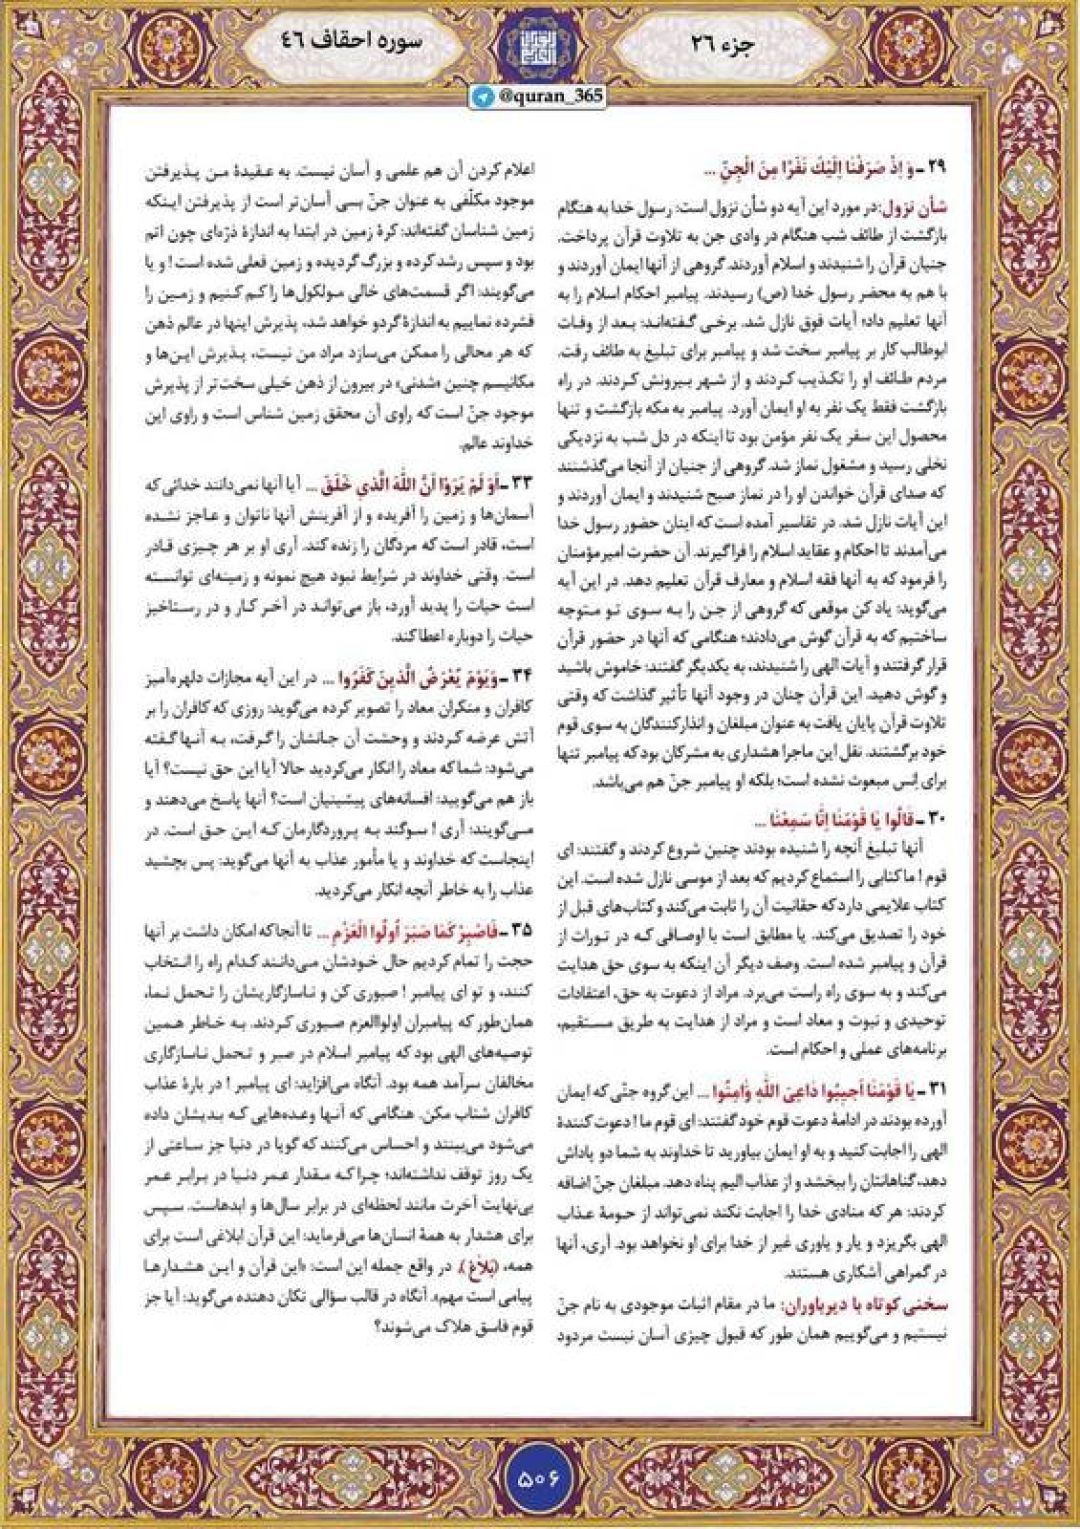 جزء ۲۶
سوره احقاف ٤٦
@quran_365
۲۹ـ وَ اِذْ صَرَفْنَا اِلَيْكَ نَفَرًا مِنَ الْجِنِّ ...
شأن نزول: در مورد این آیه دو شأن نزول است: رسول خدا به هنگام
بازگشت از طائف شب هنگام در وادی جن به تلاوت قرآن پرداخت.
جنیان قرآن را شنیدند و اسلام آوردند. گروهی از آنها ایمان آوردند و
با هم به محضر رسول خدا (ص) رسیدند. پیامبر احکام اسلام را به
آنها تعلیم داد؛ آیات فوق نازل شد. برخی گفته‌اند: بعد از وفات
ابوطالب کار بر پیامبر سخت شد و پیامبر برای تبلیغ به طائف رفت.
مردم طائف او را تکذیب کردند و از شهر بیرونش کردند. در راه
بازگشت فقط یک نفر به او ایمان آورد. پیامبر به مکه بازگشت و تنها
محصول این سفر یک نفر مؤمن بود تا اینکه در دل شب به نزدیکی
نخلی رسید و مشغول نماز شد. گروهی از جنیان از آنجا می‌گذشتند
که صدای قرآن خواندن او را در نماز صبح شنیدند و ایمان آوردند و
این آیات نازل شد. در تفاسیر آمده است که اینان حضور رسول خدا
می‌آمدند تا احکام و عقاید اسلام را فراگیرند. آن حضرت امیرمؤمنان
را فرمود که به آنها فقه اسلام و معارف قرآن تعلیم دهد. در این آیه
می‌گوید: یاد کن موقعی که گروهی از جن را به سوی تو متوجه
ساختیم که به قرآن گوش می‌دادند؛ هنگامی که آنها در حضور قرآن
قرار گرفتند و آیات الهی را شنیدند، به یکدیگر گفتند: خاموش باشید
و گوش دهید. این قرآن چنان در وجود آنها تأثیر گذاشت که وقتی
تلاوت قرآن پایان یافت به عنوان مبلغان و انذارکنندگان به سوی قوم
خود برگشتند. نقل این ماجرا هشداری به مشرکان بود که پیامبر تنها
برای اِنس مبعوث نشده است؛ بلکه او پیامبر جنّ هم می‌باشد.
۳۰ـ قَالُوا يَا قَوْمَنَا اِنَّا سَمِعْنَا ...
آنها تبلیغ آنچه را شنیده بودند چنین شروع کردند و گفتند: ای
قوم! ما کتابی را استماع کردیم که بعد از موسی نازل شده است. این
کتاب علایمی دارد که حقانیت آن را ثابت می‌کند و کتاب‌های قبل از
خود را تصدیق می‌کند. یا مطابق است با اوصافی که در تورات از
قرآن و پیامبر شده است. وصف دیگر آن اینکه به سوی حق هدایت
می‌کند و به سوی راه راست می‌برد. مراد از دعوت به حق، اعتقادات
توحیدی و نبوت و معاد است و مراد از هدایت به طریق مستقیم،
برنامه‌های عملی و احکام است.
۳۱ـ يَا قَوْمَنَا اَجِيبُوا دَاعِيَ اللّٰهِ وَاٰمِنُوا ... این گروه جنّی که ایمان
آورده بودند در ادامهٔ دعوت قوم خود گفتند: ای قوم ما! دعوت کنندهٔ
الهی را اجابت کنید و به او ایمان بیاورید تا خداوند به شما دو پاداش
دهد، گناهانتان را ببخشد و از عذاب الیم پناه دهد. مبلغان جنّ اضافه
کردند: هر که منادی خدا را اجابت نکند نمی‌تواند از حومهٔ عذاب
الهی بگریزد و یار و یاوری غیر از خدا برای او نخواهد بود. آری، آنها
در گمراهی آشکاری هستند.
سخنی کوتاه با دیرباوران: ما در مقام اثبات موجودی به نام جنّ
نیستیم و می‌گوییم همان طور که قبول چیزی آسان نیست مردود
اعلام کردن آن هم علمی و آسان نیست. به عقیدهٔ من پذیرفتن
موجود مکلّفی به عنوان جنّ بسی آسان‌تر است از پذیرفتن اینکه
زمین شناسان گفته‌اند: کرهٔ زمین در ابتدا به اندازهٔ ذرّه‌ای چون اتم
بود و سپس رشد کرده و بزرگ گردیده و زمین فعلی شده است! و یا
می‌گویند: اگر قسمت‌های خالی مولکول‌ها را کم کنیم و زمین را
فشرده نماییم به اندازهٔ گردو خواهد شد، پذیرش اینها در عالم ذهن
که هر محالی را ممکن می‌سازد مراد من نیست، پذیرش این‌ها و
مکانیسم چنین «شدنی» در بیرون از ذهن خیلی سخت‌تر از پذیرش
موجود جنّ است که راوی آن محقق زمین شناس است و راوی این
خداوند عالم.
۳۳ـ اَوَ لَمْ يَرَوْا اَنَّ اللّٰهَ الَّذِي خَلَقَ ... آیا آنها نمی‌دانند خدائی که
آسمان‌ها و زمین را آفریده و از آفرینش آنها ناتوان و عاجز نشده
است، قادر است که مردگان را زنده کند. آری او بر هر چیزی قادر
است. وقتی خداوند در شرایط نبود هیچ نمونه و زمینه‌ای توانسته
است حیات را پدید آورد، باز می‌تواند در آخر کار و در رستاخیز
حیات را دوباره اعطا کند.
۳۴ـ وَيَوْمَ يُعْرَضُ الَّذِينَ كَفَرُوا ... در این آیه مجازات دلهره‌آمیز
کافران و منکران معاد را تصویر کرده می‌گوید: روزی که کافران را بر
آتش عرضه کردند و وحشت آن جانشان را گرفت، به آنها گفته
می‌شود: شما که معاد را انکار می‌کردید حالا آیا این حق نیست؟ آیا
باز هم می‌گویید: افسانه‌های پیشینیان است؟ آنها پاسخ می‌دهند و
می‌گویند: آری! سوگند به پروردگارمان که این حق است. در
اینجاست که خداوند و یا مأمور عذاب به آنها می‌گوید: پس بچشید
عذاب را به خاطر آنچه انکار می‌کردید.
۳۵ـ فَاصْبِرْ كَمَا صَبَرَ اُولُوا الْعَزْمِ ... تا آنجا که امکان داشت بر آنها
حجت را تمام کردیم حال خودشان می‌دانند کدام راه را انتخاب
کنند، و تو ای پیامبر! صبوری کن و ناسازگاریشان را تحمل نما،
همان‌طور که پیامبران اولواالعزم صبوری کردند. به خاطر همین
توصیه‌های الهی بود که پیامبر اسلام در صبر و تحمل ناسازگاری
مخالفان سرآمد همه بود. آنگاه می‌افزاید: ای پیامبر! در بارهٔ عذاب
کافران شتاب مکن. هنگامی که آنها وعده‌هایی که بدیشان داده
می‌شود می‌بینند و احساس می‌کنند که گویا در دنیا جز ساعتی از
یک روز توقف نداشته‌اند؛ چرا که مقدار عمر دنیا در برابر عمر
بی‌نهایت آخرت مانند لحظه‌ای در برابر سال‌ها و ابدهاست. سپس
برای هشدار به همهٔ انسان‌ها می‌فرماید: این قرآن ابلاغی است برای
همه، (بَلَاغٌ). در واقع جمله این است: «این قرآن و این هشدارها
پیامی است مهم». آنگاه در قالب سؤالی تکان دهنده می‌گوید: آیا جز
قوم فاسق هلاک می‌شوند؟
۵۰۶